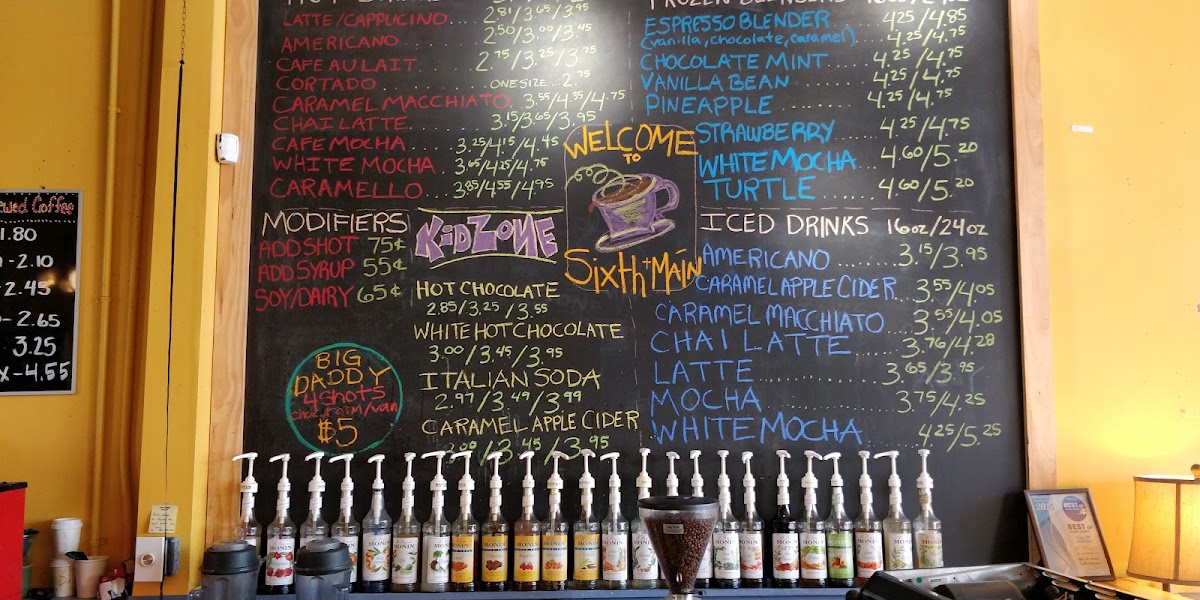 LATTE/CAPPUCINO.... 2.81/3.65/3.95
AMERICANO ........ 2.50/3.00/3.45
CAFE AU LAIT ...... 2.75/3.25/3.75
CORTADO ONE SIZE...2.75
CARAMEL MACCHIATO. 3.55/4.35/4.75
CHAI LATTE ........ 3.15/3.65/3.95
CAFE MOCHA .... 3.25/4.15/4.45
WHITE MOCHA . 3.65/4.25/4.75
CARAMELLO.... 3.85/4.55/4.95
MODIFIERS
ADD SHOT 75¢
ADD SYRUP 55¢
SOY/DAIRY 65¢
BIG
DADDY
4 SHOTS
$5
WELCOME
TO
SIXTH + MAIN
KIDZONE
HOT CHOCOLATE
2.85/3.25/3.55
WHITE HOT CHOCOLATE
3.00/3.45/3.95
ITALIAN SODA
2.97/3.49/3.99
CARAMEL APPLE CIDER
3.00/3.45/3.95
ESPRESSO BLENDER ..... 4.25/4.85
(vanilla, chocolate, caramel). 4.25/4.75
CHOCOLATE MINT ..... 4.25/4.75
VANILLA BEAN ....... 4.25/4.75
PINEAPPLE ........ 4.25/4.75
STRAWBERRY .... 4.25/4.75
WHITE MOCHA .. 4.60/5.20
TURTLE ...... 4.60/5.20
ICED DRINKS 16oz/24oz
AMERICANO ........ 3.15/3.95
CARAMEL APPLE CIDER.. 3.55/4.05
CARAMEL MACCHIATO ... 3.55/4.05
CHAI LATTE ...... 3.76/4.28
LATTE ............ 3.65/3.95
MOCHA ............ 3.75/4.25
WHITE MOCHA ...... 4.25/5.25
Coffee
1.80
-2.10
2.45
-2.65
3.25
x-4.55
MONIN
BEST